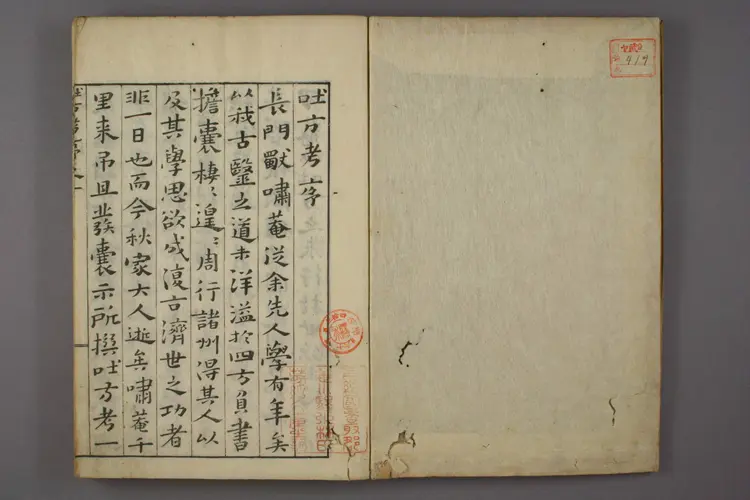 吐方考序
長門獸嘯菴從余先人學有年矣
以我古毉之道未洋溢於四方負書
擔囊棲〻遑〻周行諸州得其人以
及其學思欲成復古濟世之功者
非一日也而今秋家大人逝矣嘯菴千
里来吊且發囊示所撰吐方考一
吐方考序 一
919